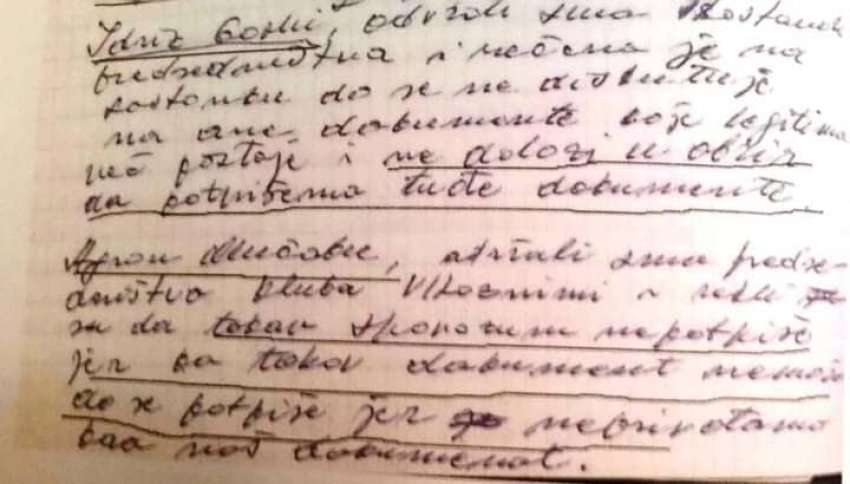 Idriz Goshi, održali smo sastanak
predsedništva i rečeno je na
sastanku da se ne diskutuje
na one dokumente koje legitimno
već postoje i ne dolazi u obzir
da potpišemo tuđe dokumente.
Agron Mučaku, održali smo predse-
dništvo kluba Vllaznimi i rekli
su da takav sporazum nepotpiše
jer sa takav dokument nemože
da se potpiše jer neprivatamo
kao naš dokumenat.